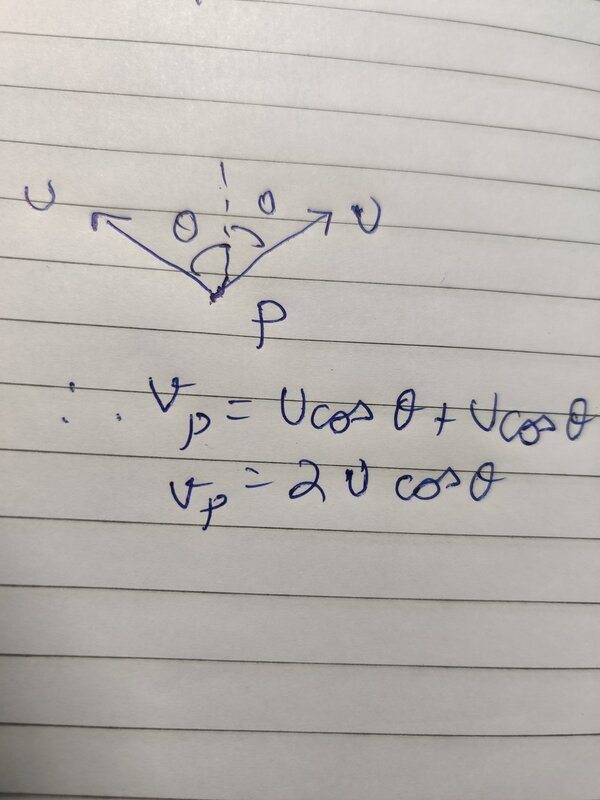 U θ θ U
P
∴ v_p = U cos θ + U cos θ
v_p = 2 U cos θ